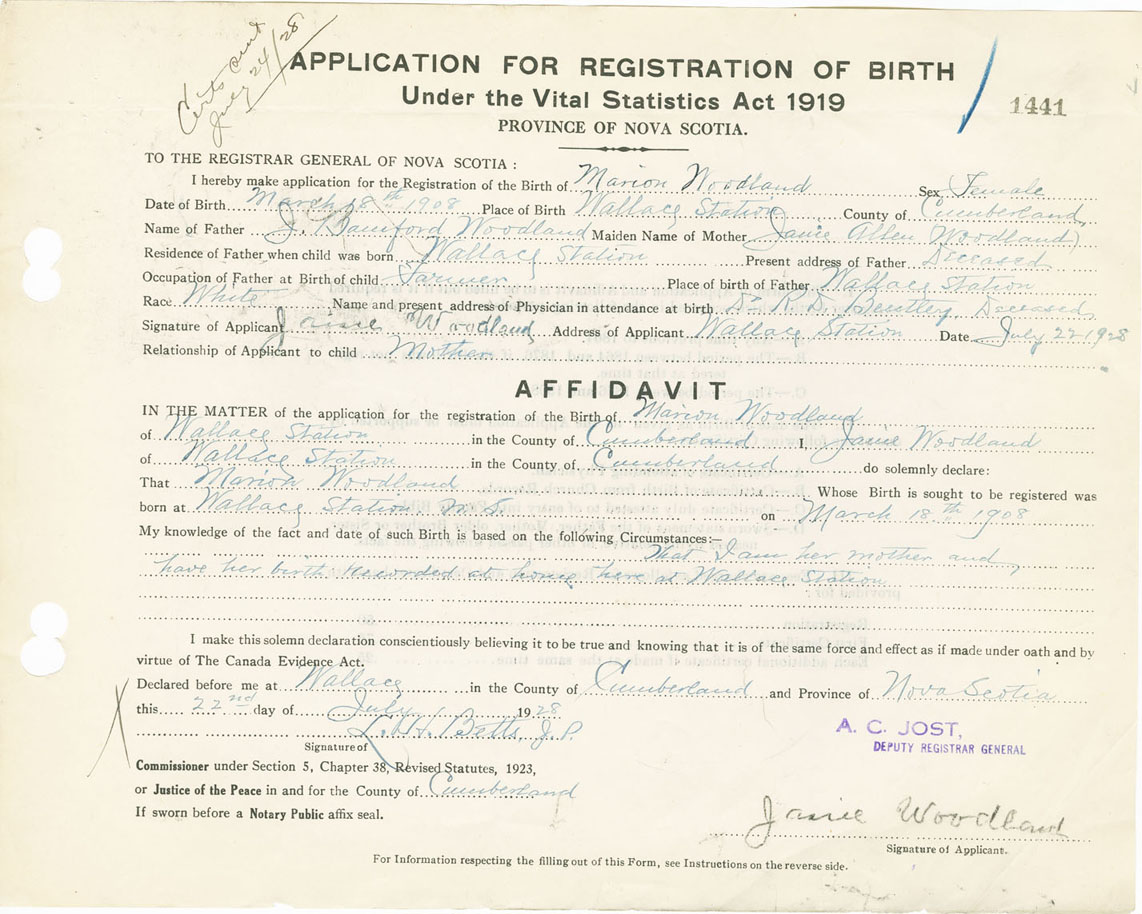 Certs sent
July 24/28
APPLICATION FOR REGISTRATION OF BIRTH
Under the Vital Statistics Act 1919
1441
PROVINCE OF NOVA SCOTIA.
TO THE REGISTRAR GENERAL OF NOVA SCOTIA :
I hereby make application for the Registration of the Birth of Marion Woodland Sex Female
Date of Birth March 18th 1908 Place of Birth Wallace Station County of Cumberland
Name of Father J. Bamford Woodland Maiden Name of Mother Janie Allen Woodland)
Residence of Father when child was born Wallace Station Present address of Father Deceased
Occupation of Father at Birth of child Farmer Place of birth of Father Wallace Station
Race White Name and present address of Physician in attendance at birth Dr R. D. Bentley Deceased
Signature of Applicant Janie Woodland Address of Applicant Wallace Station Date July 22 1928
Relationship of Applicant to child Mother
AFFIDAVIT
IN THE MATTER of the application for the registration of the Birth of Marion Woodland
of Wallace Station in the County of Cumberland I, Janie Woodland
of Wallace Station in the County of Cumberland do solemnly declare:
That Marion Woodland Whose Birth is sought to be registered was
born at Wallace Station N.S. on March 18th 1908
My knowledge of the fact and date of such Birth is based on the following Circumstances:—
That I am her mother and
have her birth recorded at home here at Wallace Station
I make this solemn declaration conscientiously believing it to be true and knowing that it is of the same force and effect as if made under oath and by
virtue of The Canada Evidence Act.
Declared before me at Wallace in the County of Cumberland and Province of Nova Scotia
this 22nd day of July 1928
L. H. Betts, J.P.
A. C. JOST,
DEPUTY REGISTRAR GENERAL
Signature of
Commissioner under Section 5, Chapter 38, Revised Statutes, 1923,
or Justice of the Peace in and for the County of Cumberland
If sworn before a Notary Public affix seal.
Janie Woodland
Signature of Applicant.
For Information respecting the filling out of this Form, see Instructions on the reverse side.